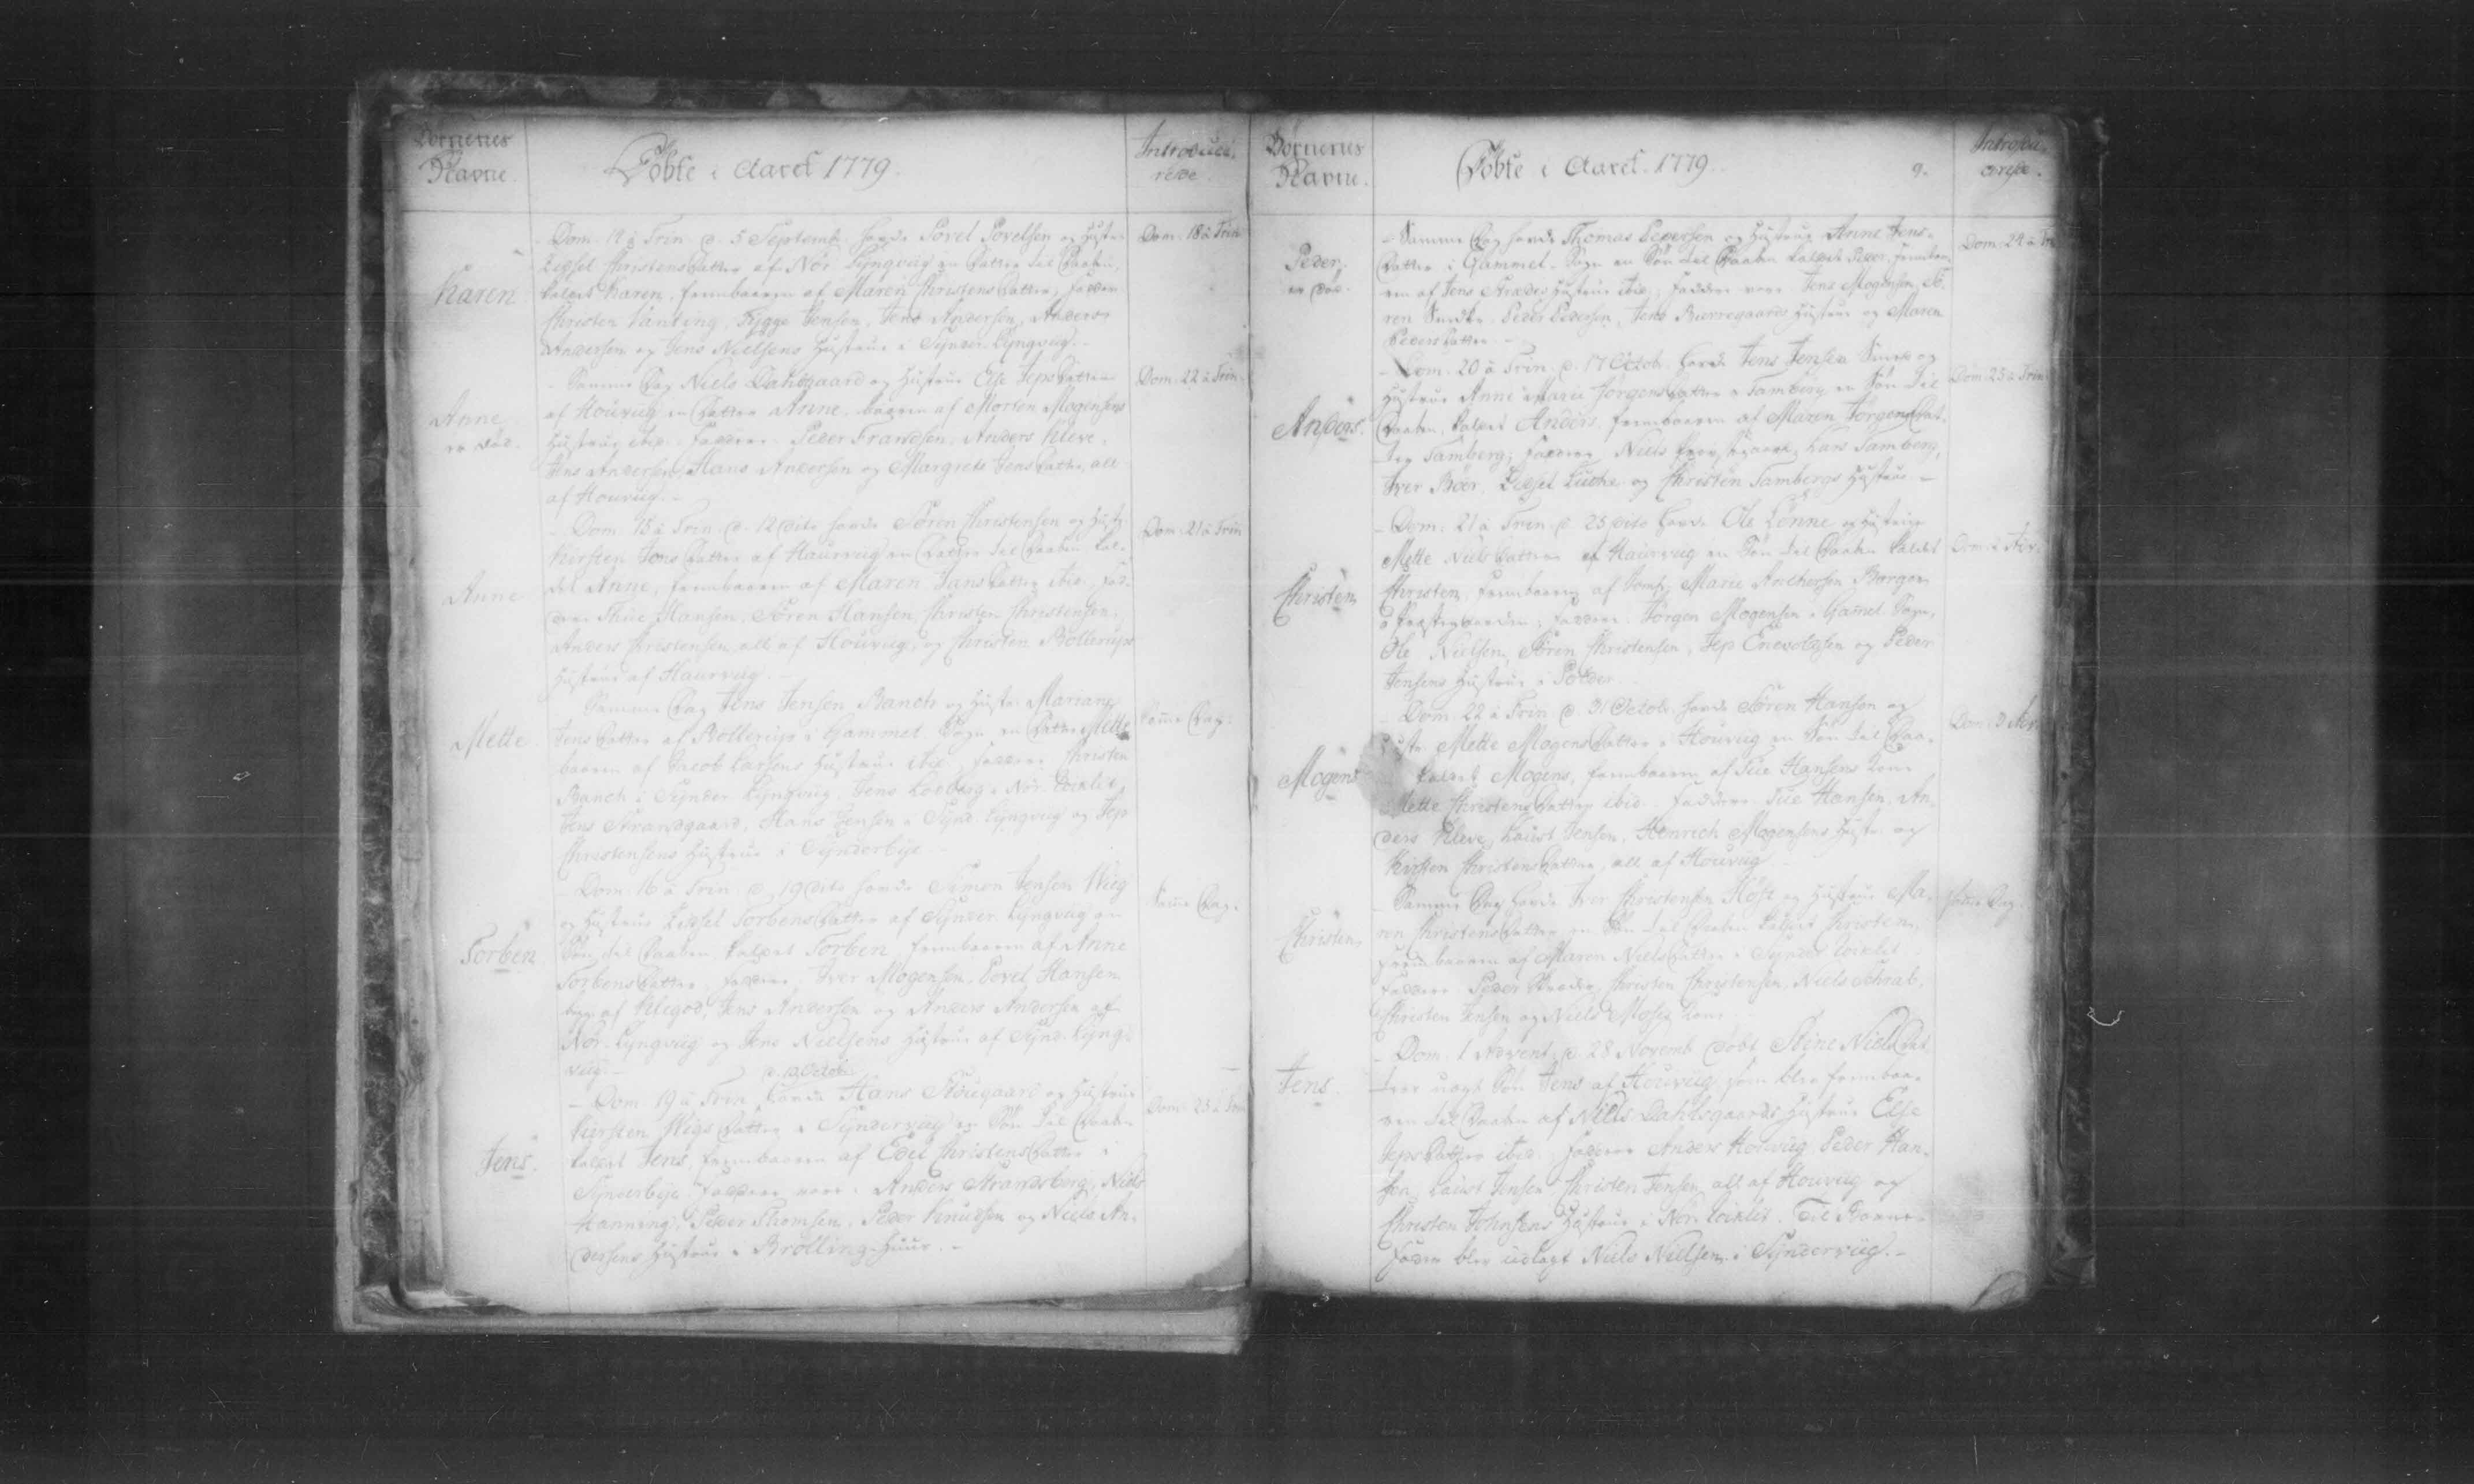 Börnenes
Navne.
Döbte i Aaret 1779.
Introduce-
rede.
Karen
Dom. 14 à Trin. d. 5 Septemb. havde Povel Povelsen og Hustr.
Zidsel Christens Datter af Nör Lyngvig en Datter til Daaben,
kaldet Karen, frembaaren af Maren Christens Datter, Faddere
Christen Vanting, Tygge Jensen, Jens Andersen, Anders
Andersen og Jens Nielsens Hustrue i Synder Lyngvig.
Dom. 18 à Trin
Anne
er död.
- Samme Dag Niels Dahlsgaard og Hustrue Else Jeps Datter
af Houvig en Datter Anne, baaren af Morten Mogensens
Hustrue ibid. Faddere Peder Frandsen, Anders Kleve,
Jens Andersen, Hans Andersen og Margrete Jens Datter, all
af Houvig. -
Dom. 22 à Trin
Anne
- Dom. 15 à Trin. d. 12 dito havde Sören Christensen og Hustr.
Kirsten Jens Datter af Haurvig en Datter til Daaben kal-
det Anne, frembaaren af Maren Hans Datter ibid. Fad-
dere Thue Hansen, Sören Hansen, Christen Christensen,
Anders Christensen, all af Houvig, og Christen Bollerups
Hustrue af Haurvig. -
Dom. 21 à Trin
Mette
Samme Dag Jens Jensen Ranch og Hustr. Mariane
Jens Datter af Bollerup i Gammel Sogn en Datter Mette
baaren af Jacob Larsens Hustrue ibid. Faddere Christen
Ranch i Synder Lyngvig, Jens Loeborg i Nör
Jens Strandgaard, Hans Jensen i Synd. Lyngvig og Jep
Christensens Hustrue i Synderbye. -
Samme Dag.
Torben
- Dom. 16 à Trin. d. 19 dito havde Simon Jensen Wiig
og Hustrue Zidsel Torbens Datter af Synder Lyngvig en
Sön til Daaben, kaldet Torben, frembaaren af Anne
Torbens Datter, Faddere Iver Mogensen, Povel Hansen
af Klegod, Jens Andersen og Anders Andersen af
Nör Lyngvig og Jens Nielsens Hustrue af Synd. Lyng-
vig. -
Samme Dag.
d. 10 Octob.
Jens.
- Dom. 19 à Trin. havde Hans Hustrue
Kirsten Wigs Datter i Syndervig en Sön til Daaben
kaldet Jens, frembaaren af Edel Christens Datter i
Synderbye. Faddere vare: Anders Strandsberg, Niels
Hanning, Peder Thomsen, Peder Knudsen og Niels An-
dersens Hustrue i Brölling-Huus. -
Dom. 23 à Trin
Börnenes
Navne.
Döbte i Aaret 1779.
9.
Introdu-
cerede.
Peder.
er död.
- Samme Dag havde Thomas Pedersen og Hustrue Anne Jens-
Datter i Gammel-Sogn en Sön til Daaben kaldet Peder, frembaa-
ren af Jens Hustrue ibid. Faddere vare Jens Mogensen, Sö-
ren Smidt, Peder Pedersen, Jens Hustrue og Maren
Peders Datter. -
Dom. 24 à Tri
Anders.
- Dom. 20 à Trin. d. 17 Octob. havde Jens Jensen Smed og
Hustrue Anne Marie Jörgens Datter i Tamberg en Sön til
Daaben, kaldet Anders, frembaaren af Maren Jörgens Dat-
ter Tamberg; Faddere Niels Lars Tamberg,
Iver Zidsel og Christen Tambergs Hustrue. -
Dom. 25 à Trin
Christen
- Dom. 21 à Trin. d. 25 dito havde Ole Lönne og Hustrue
Mette Niels Datter af Haurvig en Sön til Daaben kaldet
Christen, frembaaren af Jomf. Marie
i Præstegaarden; Faddere: Jörgen Mogensen i Gamel Sogn,
Ole Nielsen, Sören Christensen, Jep Enevoldsen og Peder
Jensens Hustrue i
Mogens
- Dom. 22 à Trin. d. 31 Octob. havde Sören Hansen og
Hustr. Mette Mogens Datter i Houvig en Sön til Daa-
kaldet Mogens, frembaaren af Tue Hansens Kone
Mette Christens Datter ibid. Faddere Tue Hansen, An-
ders Kleve, Laust Jensen, Hemrich Mogensens Hustr. og
Kirsten Christens Datter, all af Houvig.
Christen
Samme Dag havde Iver Christensen og Hustrue Ma-
ren Christens Datter en Sön til Daaben kaldet Christen,
frembaaren af Maren Niels Datter i Synder
Faddere Peder Christen Christensen, Niels
Christen Jensen og Niels Kone
Samme Dag.
Jens.
- Dom. 1 Advent. d. 28 Novemb. döbt Stine Niels Dat-
ters uægt. Sön Jens af Houvig, som blev frembaa-
ren til Daaben af Niels Dahlsgaards Hustrue Else
Jeps Datter ibid. Faddere Anders Houvig, Peder Han-
sen, Laust Jensen, Christen Jensen, all af Houvig og
Christen Johnsens Hustrue i Nör . Til Barne-
Fader blev udlagt Niels Nielsen i Syndervig. -